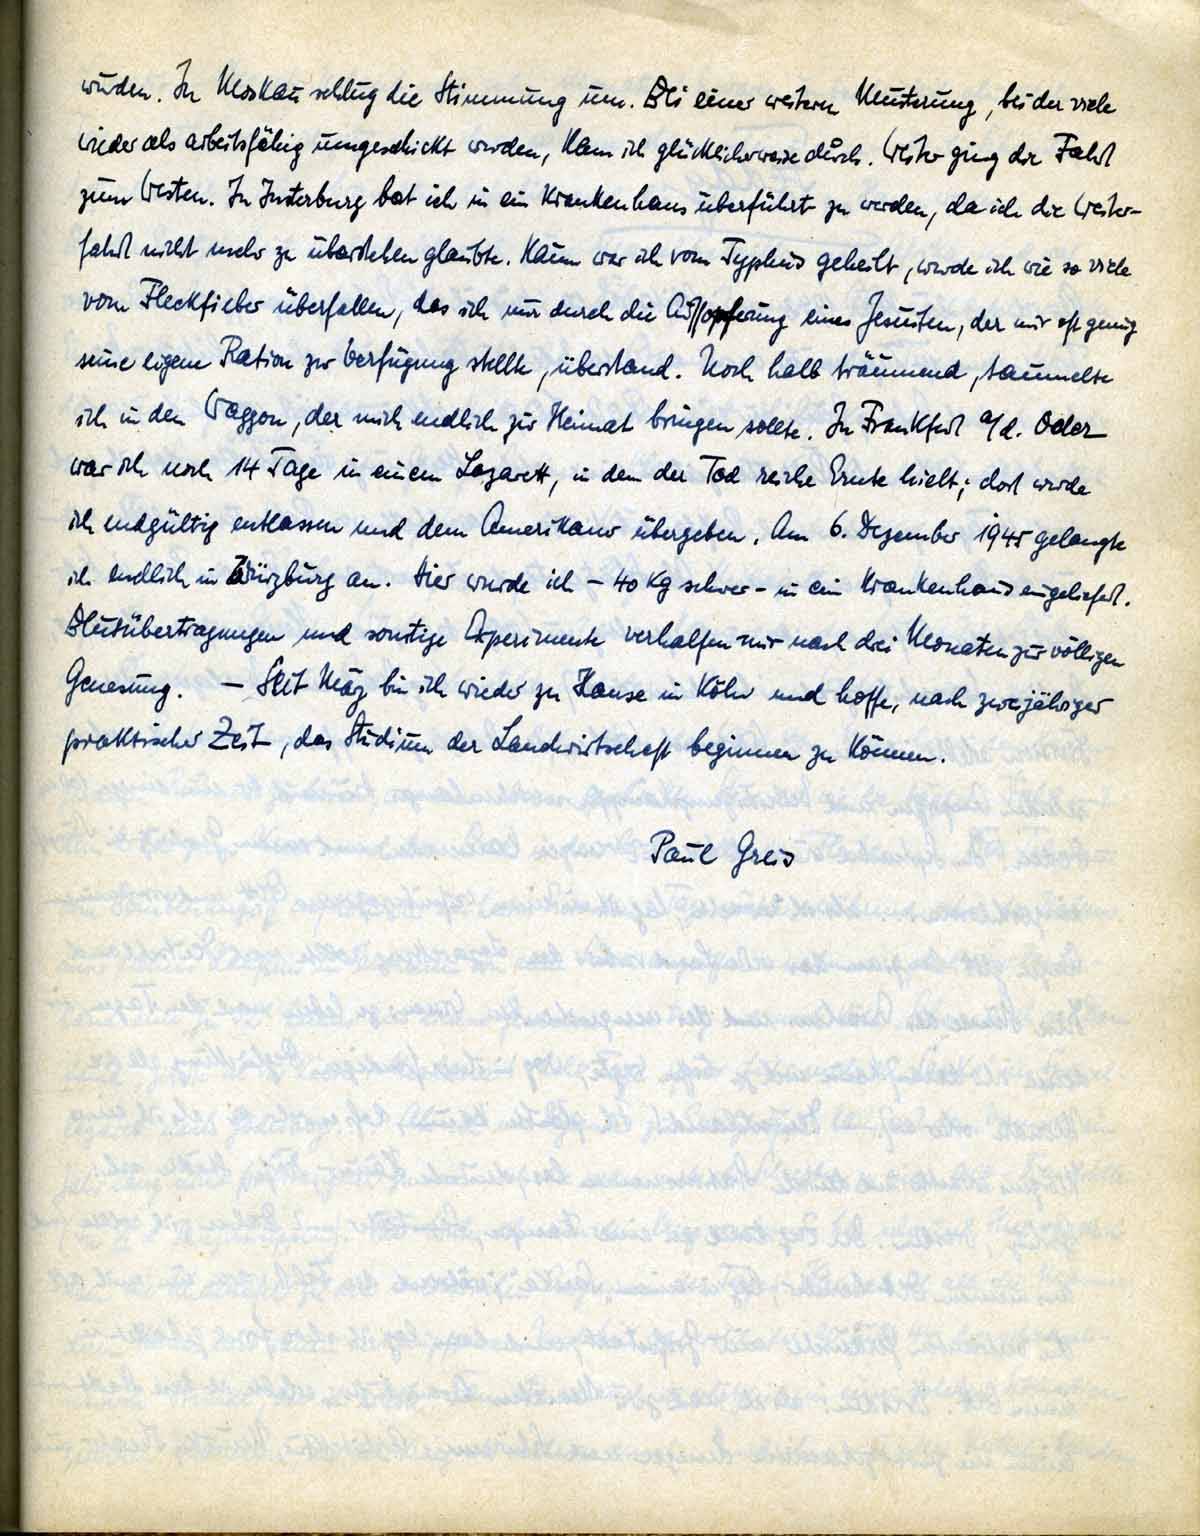 würden. In Moskau schlug die Stimmung um. Bei einer weitern Musterung, bei der viele
wieder als arbeitsfähig umgeschickt wurden, kam ich glücklicherweise durch. Weiter ging die Fahrt
zum Westen. In Insterburg bat ich in ein Krankenhaus überführt zu werden, da ich die Weiter-
fahrt nicht mehr zu überstehen glaubte. Kaum war ich vom Typhus geheilt, wurde ich wie so viele
vom Fleckfieber überfallen, das ich nur durch die Aufopferung eines Jesuiten, der mir oft genug
seine eigene Ration zur Verfügung stellte, überstand. Noch halb träumend, taumelte
ich in den Waggon, der mich endlich zur Heimat bringen sollte. In Frankfurt a/d. Oder
war ich noch 14 Tage in einem Lazarett, in dem der Tod reiche Ernte hielt; dort wurde
ich endgültig entlassen und dem Amerikaner übergeben. Am 6. Dezember 1945 gelangte
ich endlich in Würzburg an. Hier wurde ich – 40 Kg schwer – in ein Krankenhaus eingeliefert.
Blutübertragungen und sonstige Experimente verhalfen mir nach drei Monaten zur völligen
Genesung. – Seit März bin ich wieder zu Hause in Köln und hoffe, nach zweijähriger
praktischer Zeit, das Studium der Landwirtschaft beginnen zu können.
Paul Greis